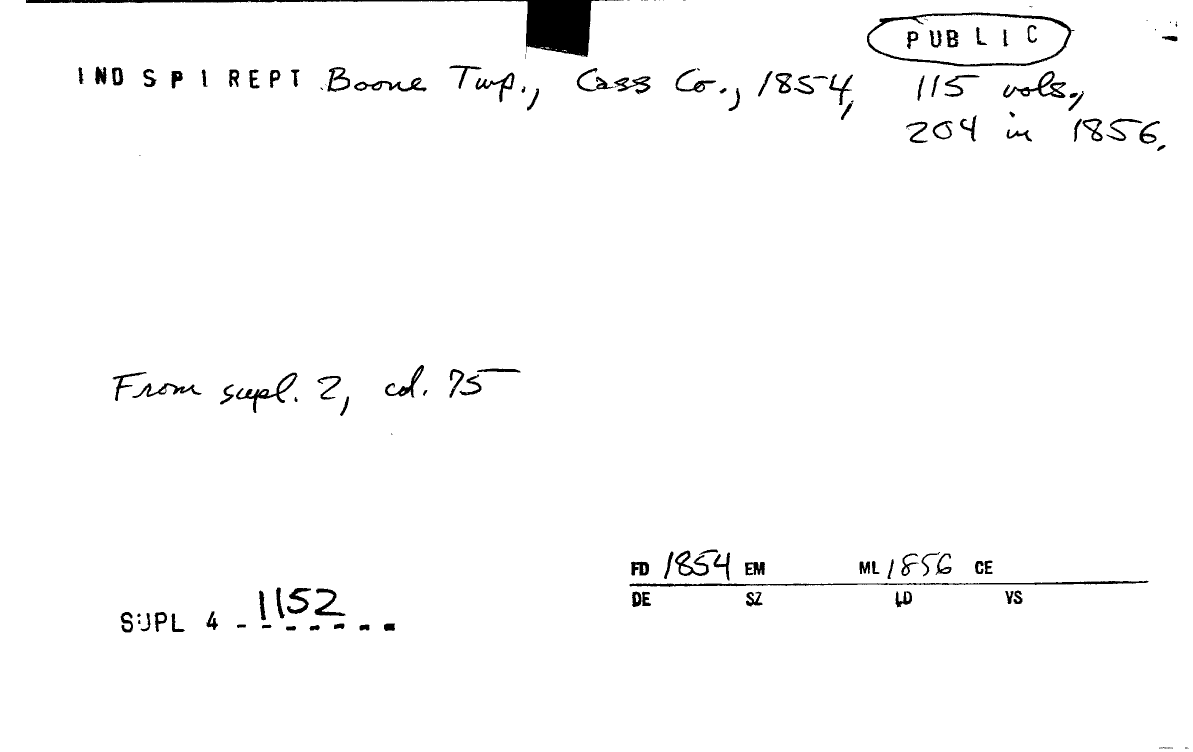 PUBLIC
IND SPI REPT Boone Twp., Cass Co., 1854, 115 vols.,
204 in 1856.
From supl. 2, cd. 75
FD 1854 EM ML 1856 CE
DE SZ LD VS
SUPL 4 - 1152